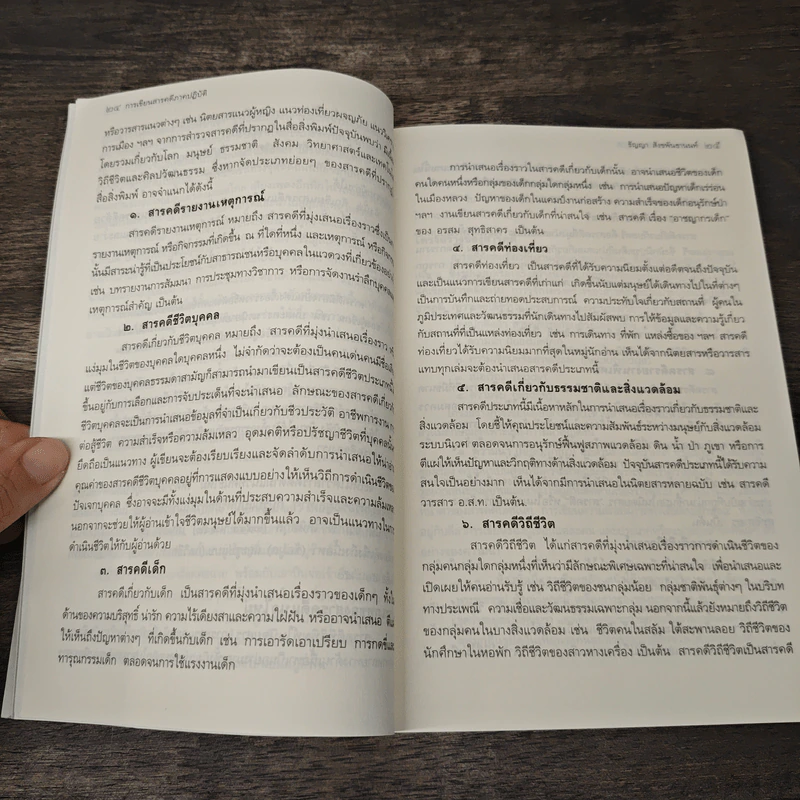 ๒๑๔ การเขียนสารคดีภาคปฏิบัติ
หรือวารสารแนวต่างๆ เช่น นิตยสารแนวผู้หญิง แนวท่องเที่ยวผจญภัย แนววิเคราะห์
การเมือง ฯลฯ จากการสำรวจสารคดีที่ปรากฏในสื่อสิ่งพิมพ์ปัจจุบันพบว่า
โดยรวมเกี่ยวกับโลก มนุษย์ ธรรมชาติ สังคม วิทยาศาสตร์และเทคโนโลยี
วิถีชีวิตและศิลปวัฒนธรรม ซึ่งหากจัดประเภทย่อยๆ ของสารคดีที่ปรากฏ
สื่อสิ่งพิมพ์ อาจจำแนกได้ดังนี้
๑. สารคดีรายงานเหตุการณ์
สารคดีรายงานเหตุการณ์ หมายถึง สารคดีที่มุ่งเสนอเรื่องราวซึ่งเป็น
รายงานเหตุการณ์ หรือกิจกรรมที่เกิดขึ้น ณ ที่ใดที่หนึ่ง และเหตุการณ์ หรือกิจกรรม
นั้นมีสาระน่ารู้ที่เป็นประโยชน์กับสาธารณชนหรือบุคคลในแวดวงที่เกี่ยวข้อง
เช่น บทรายงานการสัมมนา การประชุมทางวิชาการ หรือการจัดงานรำลึกบุคคล
เหตุการณ์สำคัญ เป็นต้น
๒. สารคดีชีวิตบุคคล
สารคดีเกี่ยวกับชีวิตบุคคล หมายถึง สารคดีที่มุ่งนำเสนอเรื่องราว
แง่มุมในชีวิตของบุคคลใดบุคคลหนึ่ง ไม่จำกัดว่าจะต้องเป็นคนเด่นคนมีชื่อเสียง
แต่ชีวิตของบุคคลธรรมดาสามัญก็สามารถนำมาเขียนเป็นสารคดีชีวิตประเภทนี้
ขึ้นอยู่กับการเลือกและการจับประเด็นที่จะนำเสนอ ลักษณะของสารคดีเกี่ยวกับ
ชีวิตบุคคลจะเป็นการนำเสนอข้อมูลที่จำเป็นเกี่ยวกับชีวประวัติ อาชีพการงาน
ต่อสู้ชีวิต ความสำเร็จหรือความล้มเหลว อุดมคติหรือปรัชญาชีวิตที่บุคคลนั้น
ยึดถือเป็นแนวทาง ผู้เขียนจะต้องเรียบเรียงและจัดลำดับการนำเสนอให้น่า
คุณค่าของสารคดีชีวิตบุคคลอยู่ที่การแสดงแบบอย่างให้เห็นวิถีการดำเนินชีวิตของ
ปัจเจกบุคคล ซึ่งอาจจะมีทั้งแง่มุมในด้านที่ประสบความสำเร็จและความล้มเหลว
นอกจากจะช่วยให้ผู้อ่านเข้าใจชีวิตมนุษย์ได้มากขึ้นแล้ว อาจเป็นแนวทางในการ
ดำเนินชีวิตให้กับผู้อ่านด้วย
๓. สารคดีเด็ก
สารคดีเกี่ยวกับเด็ก เป็นสารคดีที่มุ่งนำเสนอเรื่องราวของเด็กๆ ทั้งใน
ด้านของความบริสุทธิ์ น่ารัก ความไร้เดียงสาและความใฝ่ฝัน หรืออาจนำเสนอ ตีแผ่
ให้เห็นถึงปัญหาต่างๆ ที่เกิดขึ้นกับเด็ก เช่น การเอารัดเอาเปรียบ การกดขี่และ
ทารุณกรรมเด็ก ตลอดจนการใช้แรงงานเด็ก
ธัญญา สังขพันธานนท์ ๒๑๕
การนำเสนอเรื่องราวในสารคดีเกี่ยวกับเด็กนั้น อาจนำเสนอชีวิตของเด็ก
คนใดคนหนึ่งหรือกลุ่มของเด็กกลุ่มใดกลุ่มหนึ่ง เช่น การนำเสนอปัญหาเด็กเร่ร่อน
ในเมืองหลวง ปัญหาของเด็กในแคมป์งานก่อสร้าง ความสำเร็จของเด็กอนุรักษ์ป่า
ฯลฯ งานเขียนสารคดีเกี่ยวกับเด็กที่น่าสนใจ เช่น สารคดี เรื่อง "อาชญากรเด็ก"
ของ อรสม สุทธิสาคร เป็นต้น
๔. สารคดีท่องเที่ยว
สารคดีท่องเที่ยว เป็นสารคดีที่ได้รับความนิยมตั้งแต่อดีตจนถึงปัจจุบัน
และเป็นแนวการเขียนสารคดีที่เก่าแก่ เกิดขึ้นนับแต่มนุษย์ได้เดินทางไปในที่ต่างๆ
เป็นการบันทึกและถ่ายทอดประสบการณ์ ความประทับใจเกี่ยวกับสถานที่ ผู้คนใน
ภูมิประเทศและวัฒนธรรมที่นักเดินทางไปสัมผัสพบ การให้ข้อมูลและความรู้เกี่ยว
กับสถานที่ที่เป็นแหล่งท่องเที่ยว เช่น การเดินทาง ที่พัก แหล่งซื้อของ ฯลฯ สารคดี
ท่องเที่ยวได้รับความนิยมมากที่สุดในหมู่นักอ่าน เห็นได้จากนิตยสารหรือวารสาร
แทบทุกเล่มจะต้องนำเสนอสารคดีประเภทนี้
๕. สารคดีเกี่ยวกับธรรมชาติและสิ่งแวดล้อม
สารคดีประเภทนี้มีเนื้อหาหลักในการนำเสนอเรื่องราวเกี่ยวกับธรรมชาติและ
สิ่งแวดล้อม โดยชี้ให้คุณประโยชน์และความสัมพันธ์ระหว่างมนุษย์กับสิ่งแวดล้อม
ระบบนิเวศ ตลอดจนการอนุรักษ์ฟื้นฟูสภาพแวดล้อม ดิน น้ำ ป่า ภูเขา หรือการ
ตีแผ่ให้เห็นปัญหาและวิกฤติทางด้านสิ่งแวดล้อม ปัจจุบันสารคดีประเภทนี้ได้รับความ
สนใจเป็นอย่างมาก เห็นได้จากมีการนำเสนอในนิตยสารหลายฉบับ เช่น สารคดี
วารสาร อ.ส.ท. เป็นต้น
๖. สารคดีวิถีชีวิต
สารคดีวิถีชีวิต ได้แก่สารคดีที่มุ่งนำเสนอเรื่องราวการดำเนินชีวิตของ
กลุ่มคนกลุ่มใดกลุ่มหนึ่งที่มีลักษณะพิเศษเฉพาะที่น่าสนใจ เพื่อนำเสนอและ
เปิดเผยให้คนอ่านรับรู้ เช่น วิถีชีวิตของชนกลุ่มน้อย กลุ่มชาติพันธุ์ต่างๆ ในบริบท
ทางประเพณี ความเชื่อและวัฒนธรรมเฉพาะกลุ่ม นอกจากนี้แล้วยังหมายถึงวิถีชีวิต
ของกลุ่มคนในบางสิ่งแวดล้อม เช่น ชีวิตคนในสลัม ใต้สะพานลอย วิถีชีวิตของ
นักศึกษาในหอพัก วิถีชีวิตของสาวหางเครื่อง เป็นต้น สารคดีวิถีชีวิตเป็นสารคดี